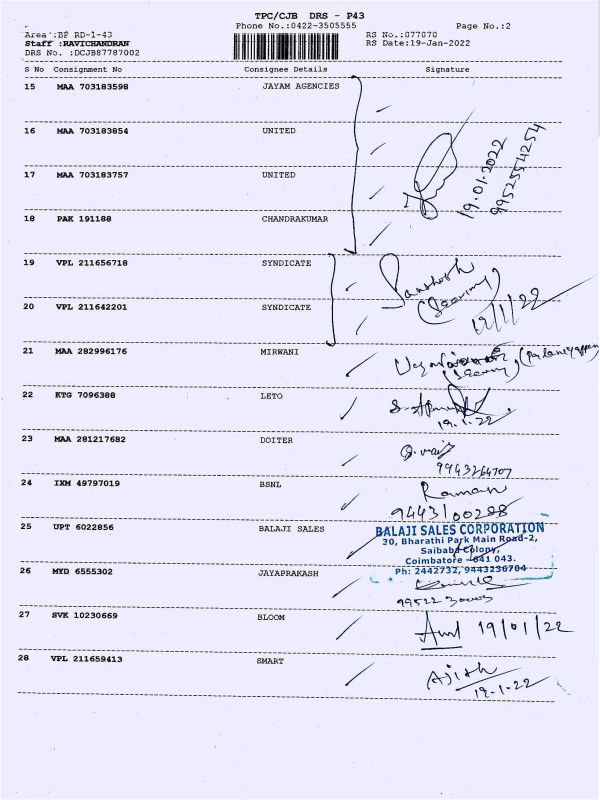 TPC/CJB DRS - P43
Phone No.:0422-3505555 Page No.:2
Area :BP RD-1-43 RS No.:077070
Staff :RAVICHANDRAN RS Date:19-Jan-2022
DRS No. :DCJB87787002
S No Consignment No Consignee Details Signature
15 MAA 703183598 JAYAM AGENCIES
16 MAA 703183854 UNITED
19.01.2022
9952554254
17 MAA 703183757 UNITED
18 PAK 191188 CHANDRAKUMAR
19 VPL 211656718 SYNDICATE Santhosh
20 VPL 211642201 SYNDICATE
19/1/22
21 MAA 282996176 MIRWANI
22 KTG 7096388 LETO
19.1.22
23 MAA 281217682 DOITER
9943264707
24 IXM 49797019 BSNL Raman
9443100288
25 UPT 6022856 BALAJI SALES BALAJI SALES CORPORATION
30, Bharathi Park Main Road-2,
Saibaba Colony,
Coimbatore - 641 043.
Ph: 2442732, 9443236704
26 MYD 6555302 JAYAPRAKASH
27 SVK 10230669 BLOOM 19/01/22
28 VPL 211659413 SMART Ajith
19-1-22